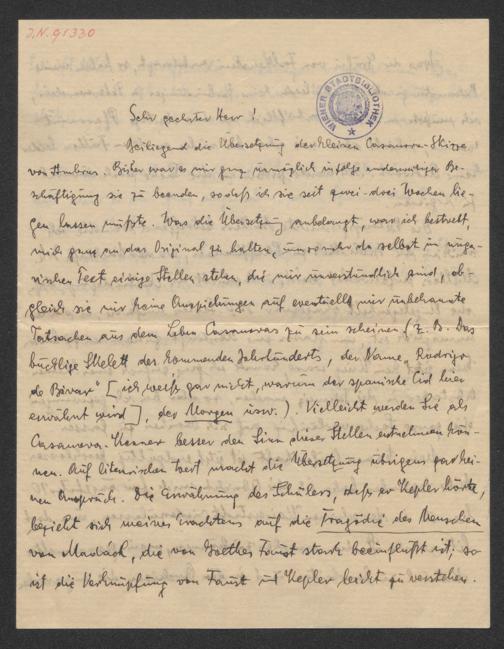 J.N. 91330
WIENER STADTBIBLIOTHEK
Sehr geehrter Herr!
Beiliegend die Übersetzung der kleinen Casanova-Skizze
von Ambrus. Bisher war es mir ganz unmöglich infolge anderweitiger Be-
schäftigung sie zu beenden, sodass ich sie seit zwei-drei Wochen lie-
gen lassen musste. Was die Übersetzung anbelangt, war ich bestrebt,
mich ganz an das Original zu halten, umsomehr da selbst im unga-
rischen Text einige Stellen stehen, die mir unverständlich sind, ob-
gleich sie mir keine Anspielungen auf eventuell mir unbekannte
Tatsachen aus dem Leben Casanovas zu sein scheinen (z. B. Das
bucklige Skelett des kommenden Jahrhunderts, der Name „Rodrigo
de Bivar" [ich weiß gar nicht, warum der spanische Cid hier
erwähnt wird], der Morgen usw.). Vielleicht werden Sie als
Casanova-Kenner besser den Sinn dieser Stellen entnehmen kön-
nen. Auf literarischen Wert macht die Übersetzung übrigens gar kei-
nen Anspruch. Die Erwähnung des Schülers, dass er Kepler hörte,
bezieht sich meines Erachtens auf die Tragödie des Menschen
von Madách, die von Goethes Faust stark beeinflußt ist; so
ist die Verknüpfung von Faust und Kepler leicht zu verstehen.